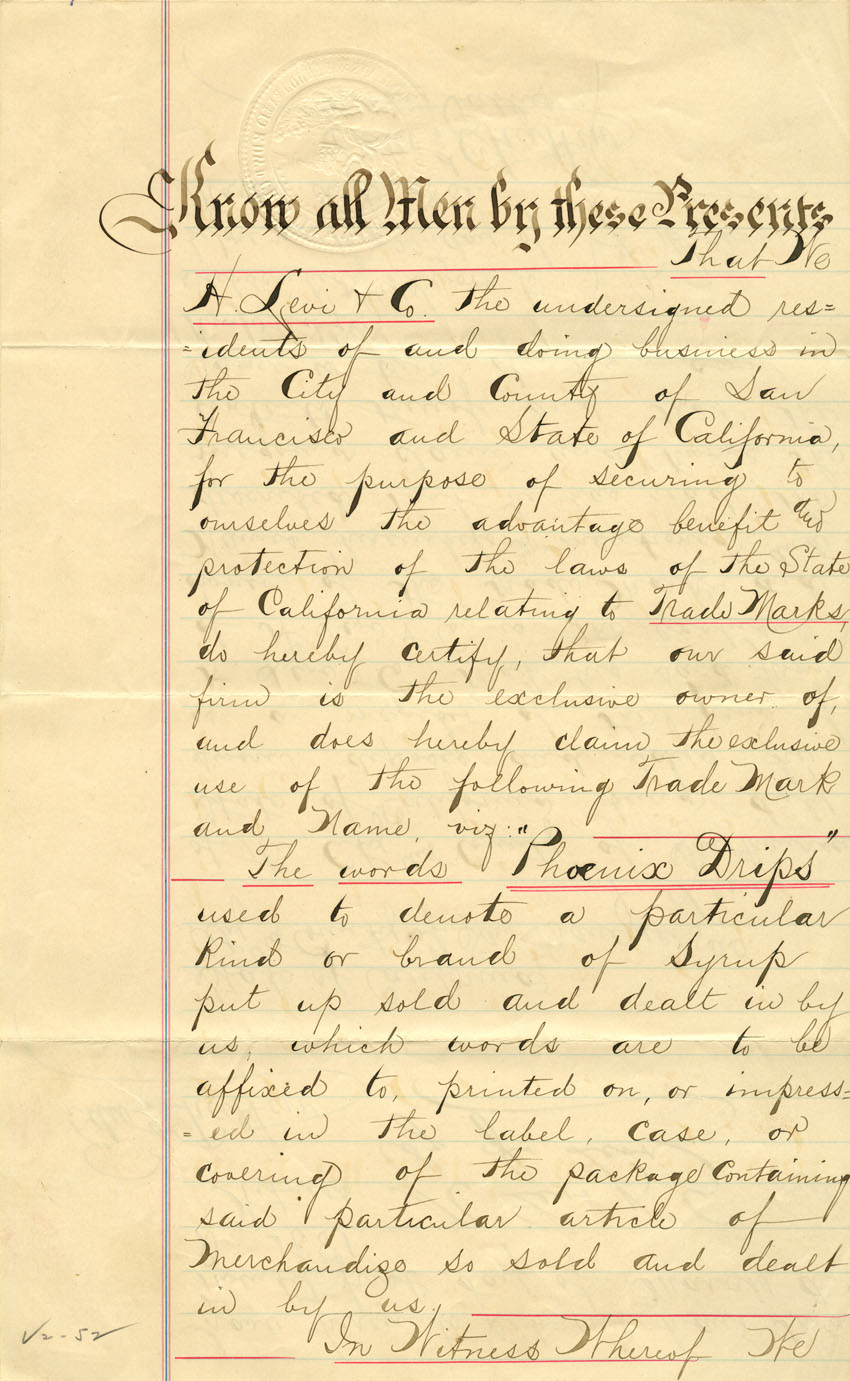 Know all Men by these Presents
That We
H. Levi & Co. the undersigned res=
=idents of and doing business in
the City and County of San
Francisco and State of California,
for the purpose of securing to
ourselves the advantage benefit and
protection of the laws of the State
of California relating to Trade Marks,
do hereby certify, that our said
firm is the exclusive owner of,
and does hereby claim the exclusive
use of the following Trade Mark
and Name, viz:
The words "Phoenix Drips"
used to denote a particular
Kind or brand of Syrup
put up sold and dealt in by
us, which words are to be
affixed to, printed on, or impress=
=ed in the label, case, or
covering of the package containing
said particular article of
Merchandize so sold and dealt
in by us.
V2-52
In Witness Whereof We